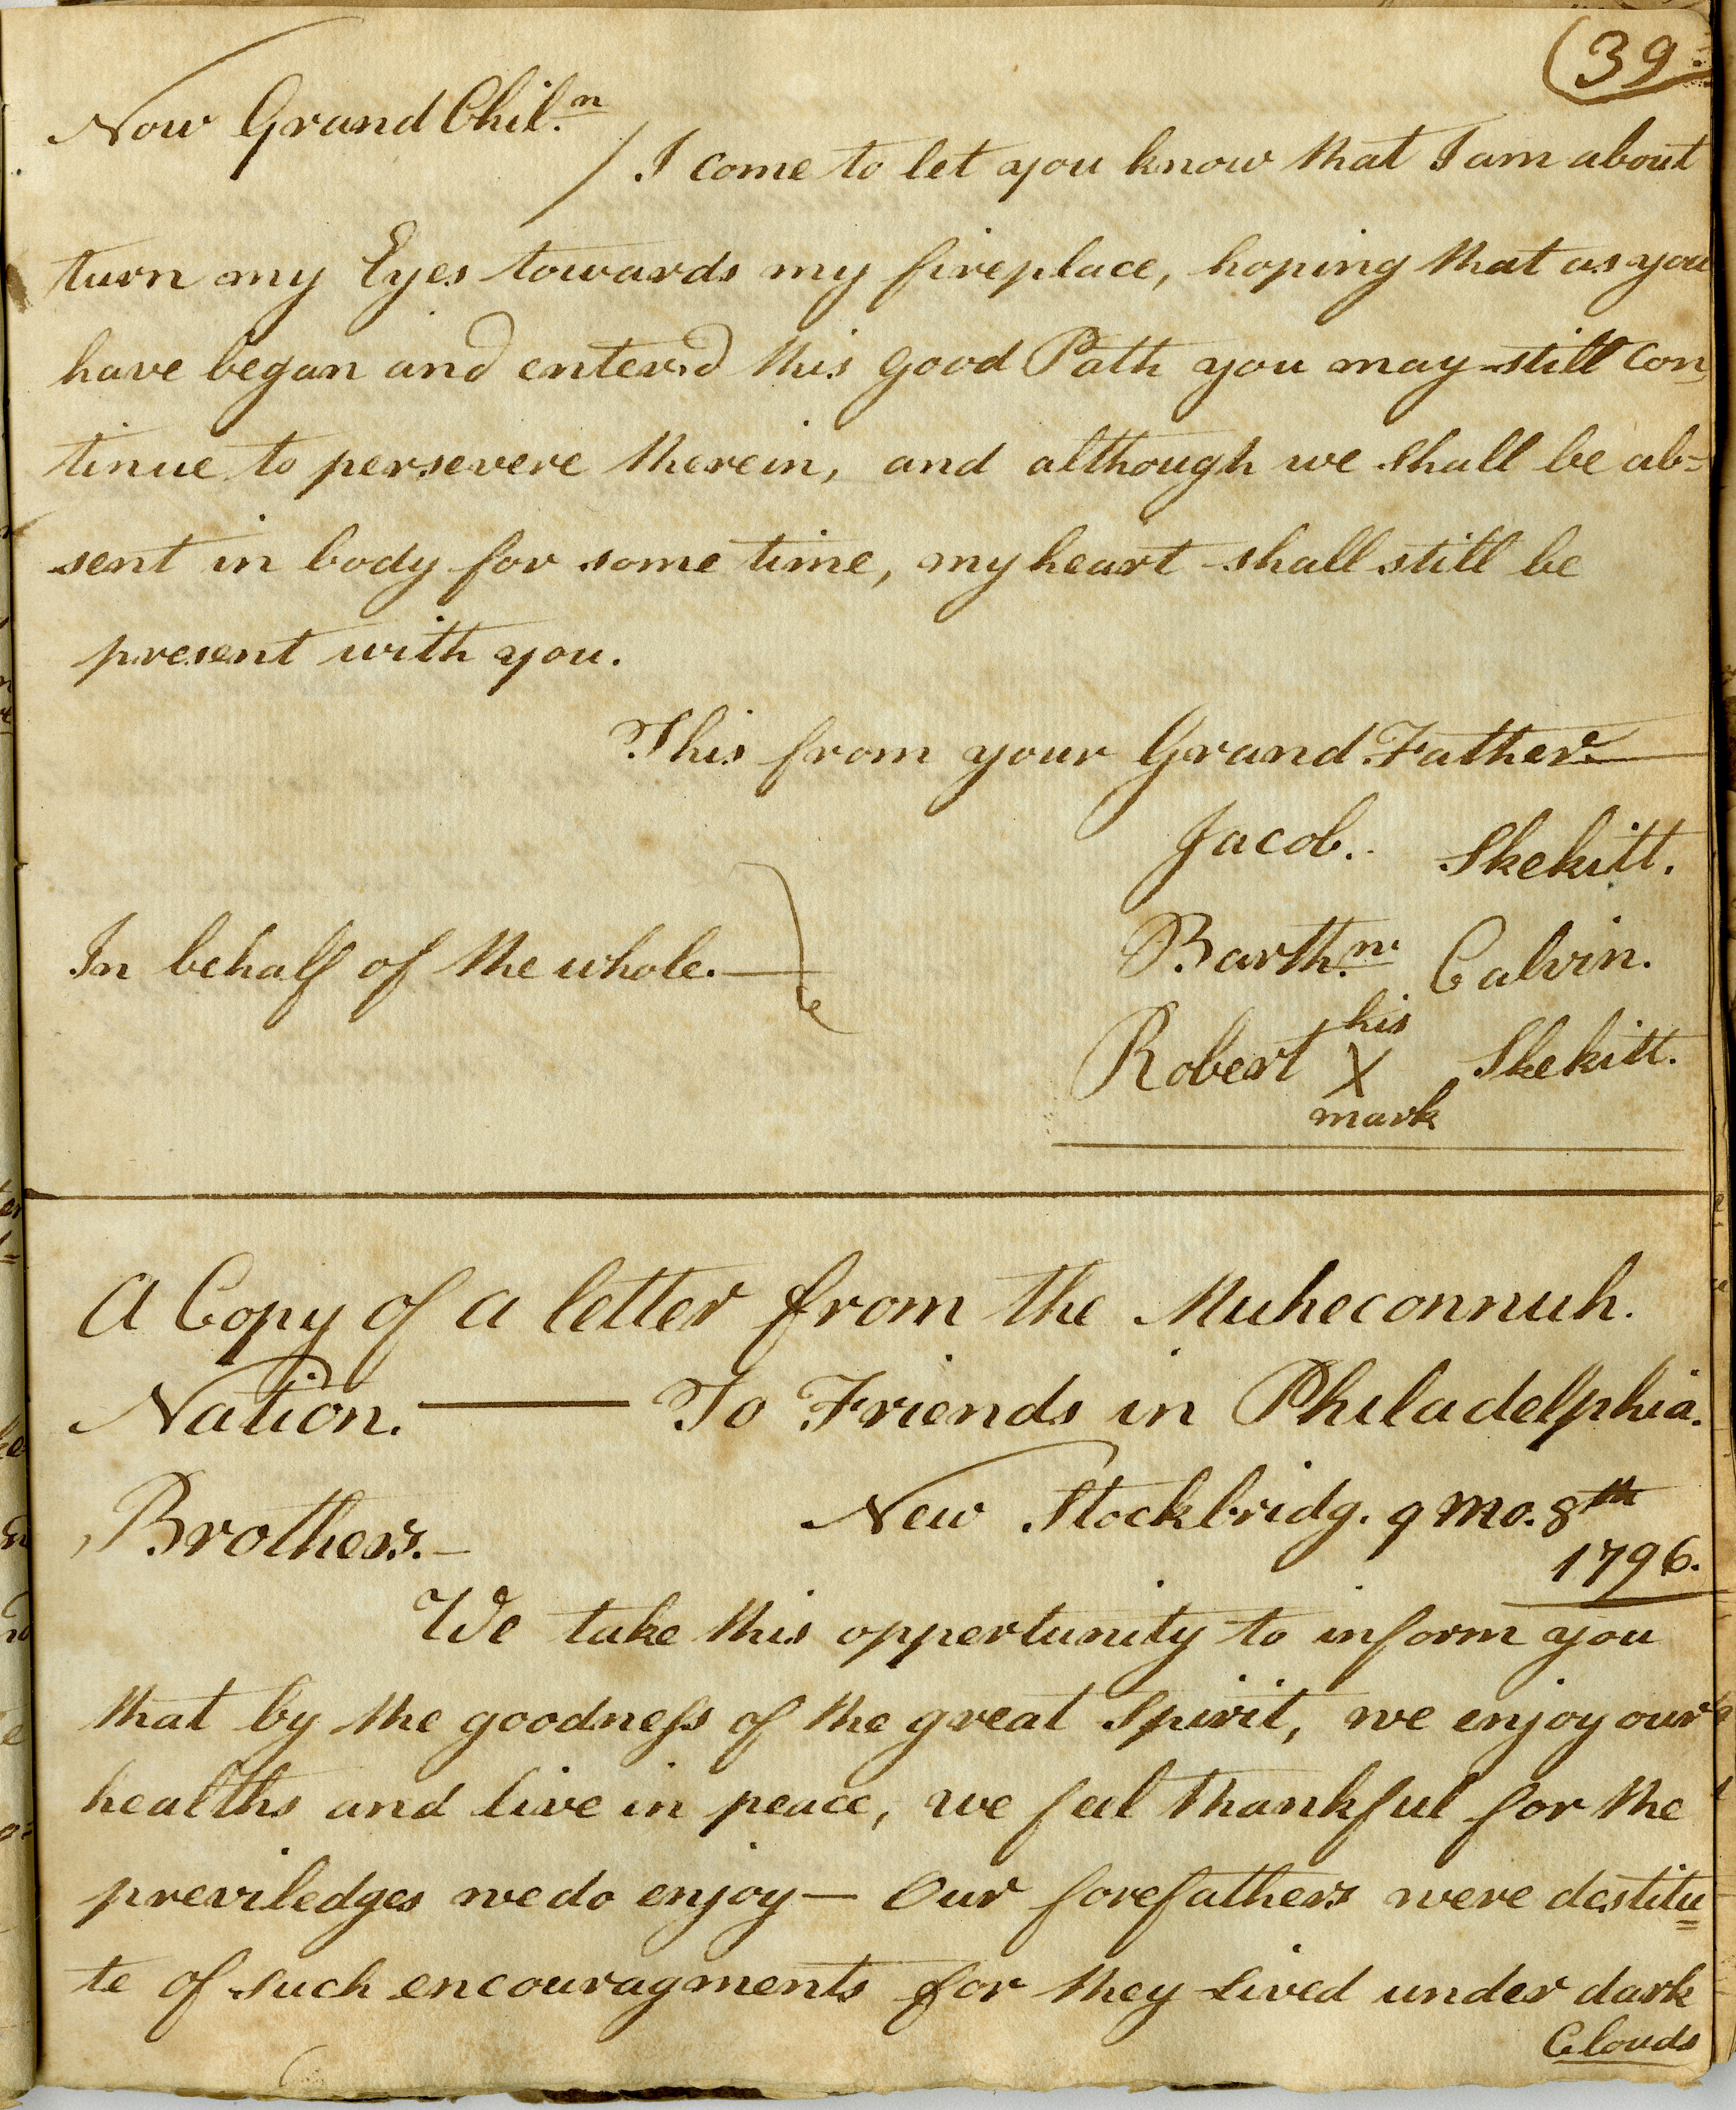 (39
Now Grand Chil.n
/ I come to let you know that I am about
turn my Eyes towards my fireplace, hoping that as you
have began and enter.d this good Path you may still con,
tinue to persevere therein, and although we shall be ab=
sent in body for some time, my heart shall still be
present with you.
This from your Grand Father.
Jacob.. Skekitt.
In behalf of the whole.
Barth.w Calvin.
his
Robert X Skekitt.
mark
A Copy of a letter from the Muheconnuh.
Nation. — To Friends in Philadelphia.
New Stockbridg. 9 mo. 8th
Brothers.—
1796.
We take this oppertunity to inform you
that by the goodness of the great Spirit, we enjoy our
healths and live in peace, we feel thankful for the
previledges we do enjoy — Our forefathers were destitu=
te of such encouragments for they lived under dark
Clouds